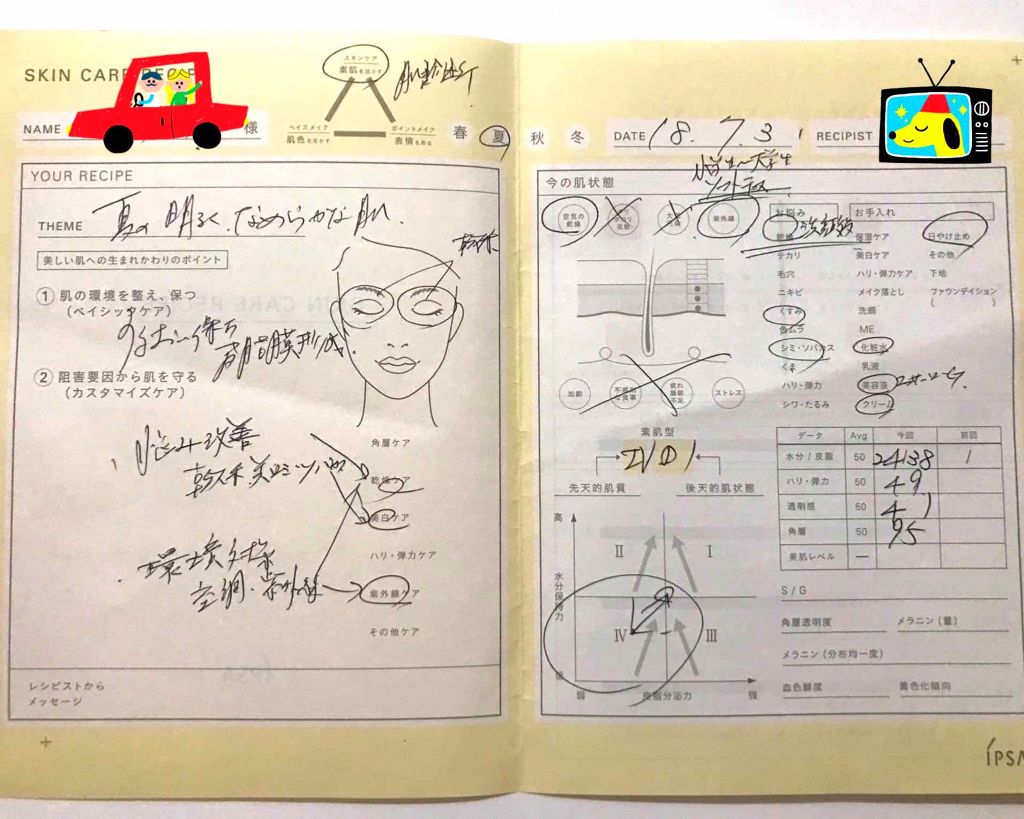 SKIN CARE RECIP
スキンケア
素肌を活かす
ベイスメイク
肌色を生かす
ポイントメイク
表情を彩る
NAME 様
春 夏
YOUR RECIPE
THEME 夏の明るくなめらかな肌.
美しい肌への生まれかわりのポイント
乾燥
① 肌の環境を整え、保つ
(ベイシックケア)
うるおい保ち
皮脂膜形成.
② 阻害要因から肌を守る
(カスタマイズケア)
悩み改善
乾燥 美白
環境対策
空調・紫外線
角層ケア
乾燥ケア
美白ケア
ハリ・弾力ケア
紫外線ケア
その他ケア
レシピストから
メッセージ
秋 冬 DATE 18.7.3 RECIPIST
小学生〜大学生
ソフトテニス
今の肌状態
空気の
乾燥
花粉
紫外線
お悩み お手入れ
乾燥 保湿ケア 日やけ止め
テカリ 美白ケア その他
毛穴 ハリ・弾力ケア 下地
ニキビ メイク落とし ファウンデイション
くすみ 洗顔 ( )
色ムラ ME
シミ・ソバカス 化粧水
くま 乳液
ハリ・弾力 美容液
シワ・たるみ クリーム
加齢
不規則
な食事
疲れ
睡眠
不足
ストレス
素肌型
IVD1
先天的肌質 後天的肌状態
データ Avg 今回 前回
水分/皮脂 50 24138 1
ハリ・弾力 50 49
透明感 50 41
角層 50 95
美肌レベル —
高
水分保持力
低
II I
IV III
弱 皮脂分泌力 強
S/G
角層透明度 メラニン(量)
メラニン(分布均一度)
血色鮮度 黄色化傾向
IPSA